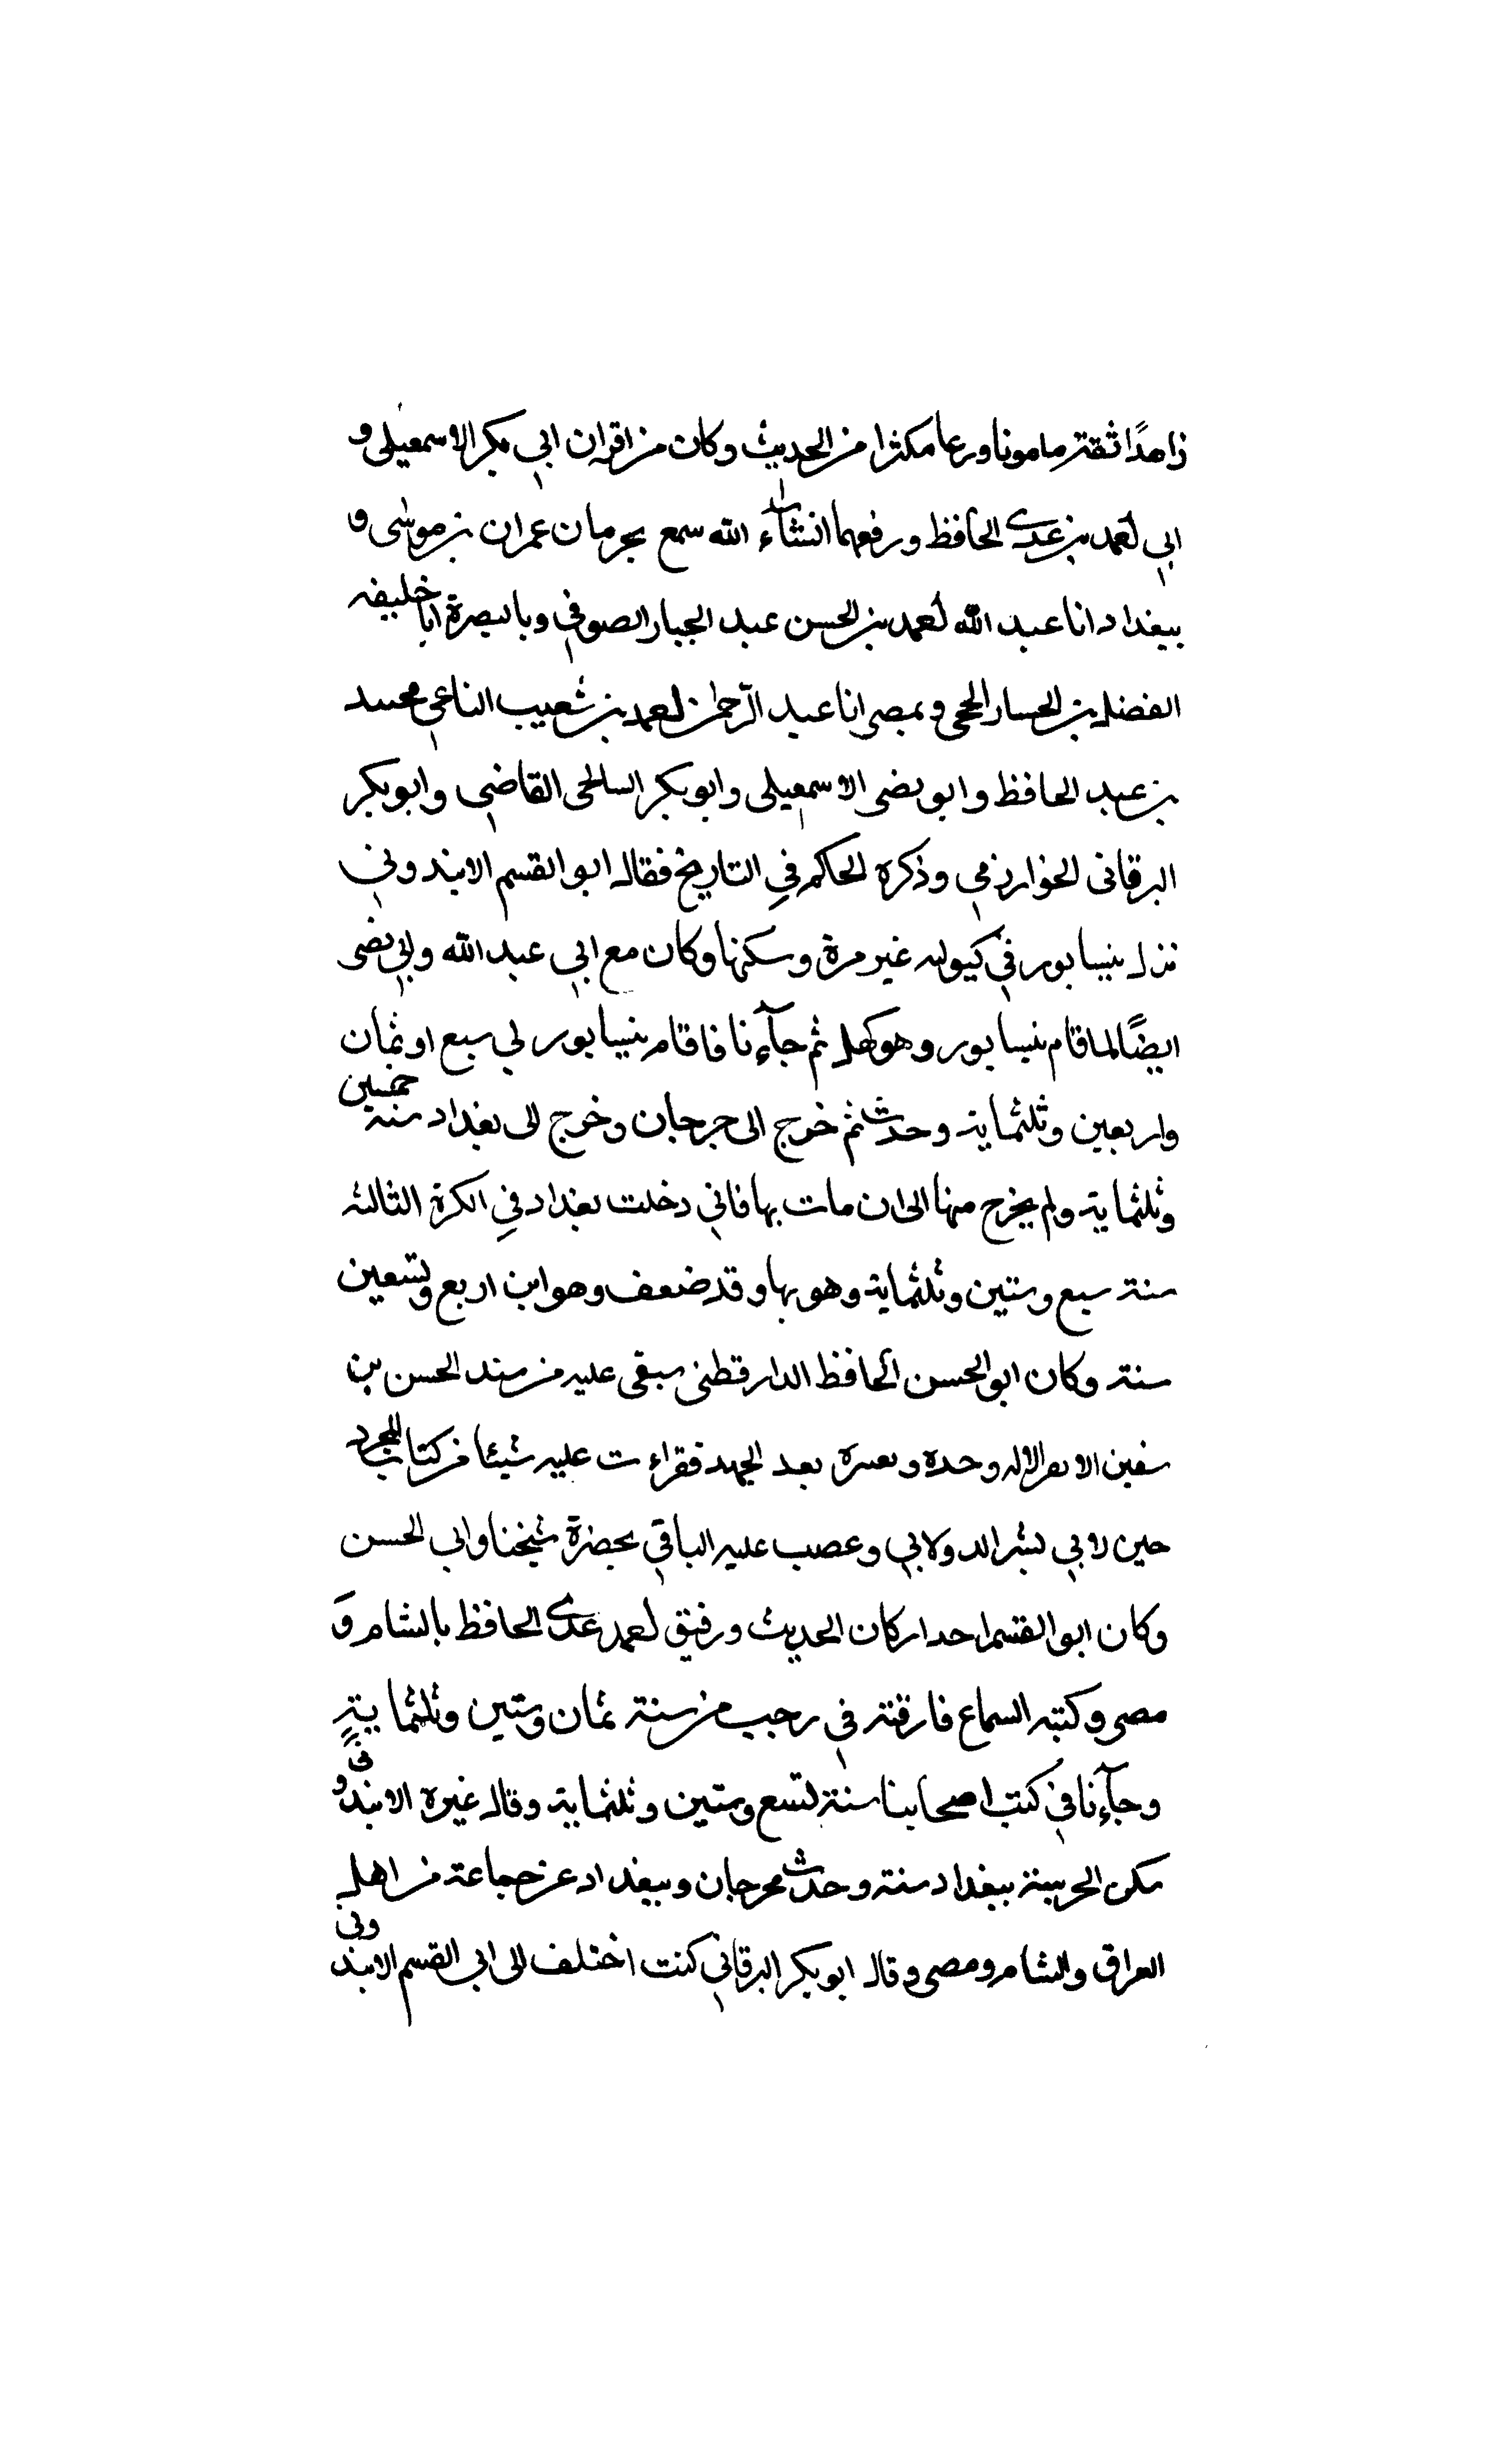 زاهدًا ثقة مامونا ورعا مكثرا من الحديث وكان من اقران ابي بكر الاسمعيلى و
ابي احمد بن عدى الحافظ ورفعهما انشاء الله سمع بجرمان عمران بن موسى و
ببغداد انا عبد الله احمد بن الحسن عبد الجبار الصوفي وبالبصرة ابا خليفه
الفضل بن الحسار الحجى وبمصر انا عبد الرحمن احمد بن شعيب الناعي محمد
بن عبد الحافظ وابو نصر الاسمعيلى وابو بكر السالحى القاضي وابو بكر
البرقانى الخوارزمي وذكره الحاكم في التاريخ فقال ابو القسم الابندوني
نزل نيسابور في غير مرة وسكنها وكان مع ابي عبد الله وابي نصر
ايضًا لما قام نيسابور وهو كهل ثم جآءنا فاقام بنيسابور لي سبع او ثمان
واربعين وثلثماية وحدث ثم خرج الى جرجان وخرج الى بغداد سنة خمسين
وثلثماية ولم يخرج منها الى ان مات بها فاني دخلت بغداد في الكرة الثالثه
سنة سبع وستين وثلثماية وهو بها وقد ضعف وهو ابن اربع وتسعين
سنة وكان ابو الحسن الحافظ الدارقطنى سبقى عليه من سند الحسن بن
سفين الا وحده بعد الجهد فقراءت عليه شيئا من كتاب المجرد
حين لابي بشر الدولابي وعصب عليه الباقي بحضرة شيخنا وابي الحسن
وكان ابو القسم احد اركان الحديث ورفيق احمد عدى الحافظ بالشام وَ
مصر وكتبه السماع فارقته في رجب من سنة ثمان وستين وثلثماية
وجآءنا في كتب اصحابنا سنة تسع وستين وثلثماية وقال غيره الابندوني
سكن الحربية ببغداد سنة وحدث بجرجان وببغداد عن جماعة من اهل
العراق والشام ومصر وقال ابو بكر البرقاني كنت اختلف الى ابي القسم الابندوني